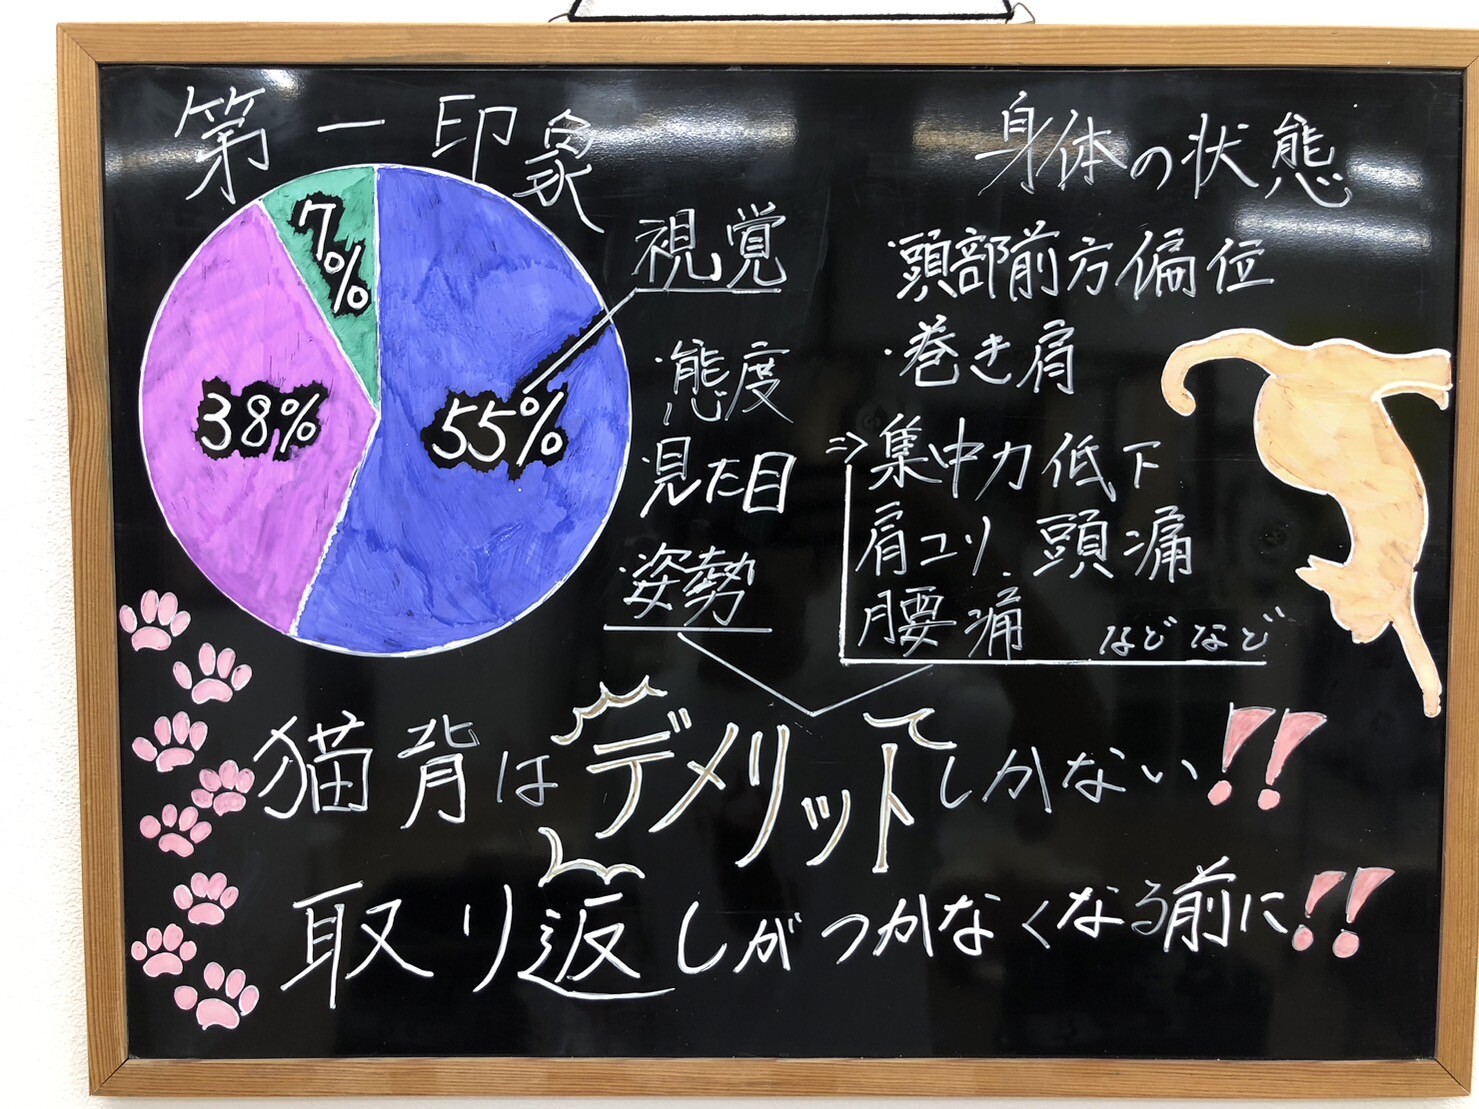 第一印象
7%
38%
55%
視覚
態度
見た目
姿勢
身体の状態
・頭部前方偏位
・巻き肩
⇒集中力低下
肩コリ 頭痛
腰痛 などなど
猫背はデメリットしかない!!
取り返しがつかなくなる前に!!